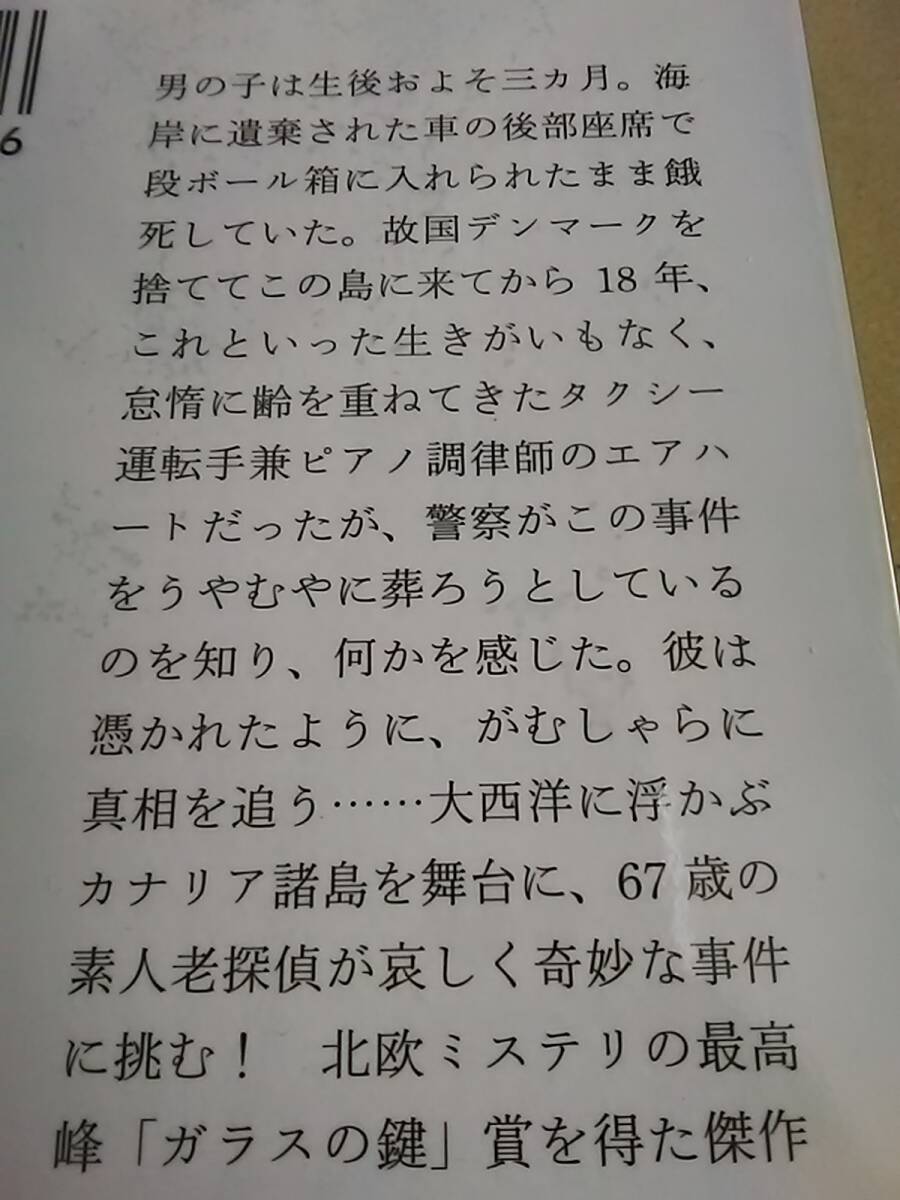 6
男の子は生後およそ三カ月。海
岸に遺棄された車の後部座席で
段ボール箱に入れられたまま餓
死していた。故国デンマークを
捨ててこの島に来てから 18 年、
これといった生きがいもなく、
怠惰に齢を重ねてきたタクシー
運転手兼ピアノ調律師のエアハ
ートだったが、警察がこの事件
をうやむやに葬ろうとしている
のを知り、何かを感じた。彼は
憑かれたように、がむしゃらに
真相を追う……大西洋に浮かぶ
カナリア諸島を舞台に、67 歳の
素人老探偵が哀しく奇妙な事件
に挑む！　北欧ミステリの最高
峰「ガラスの鍵」賞を得た傑作